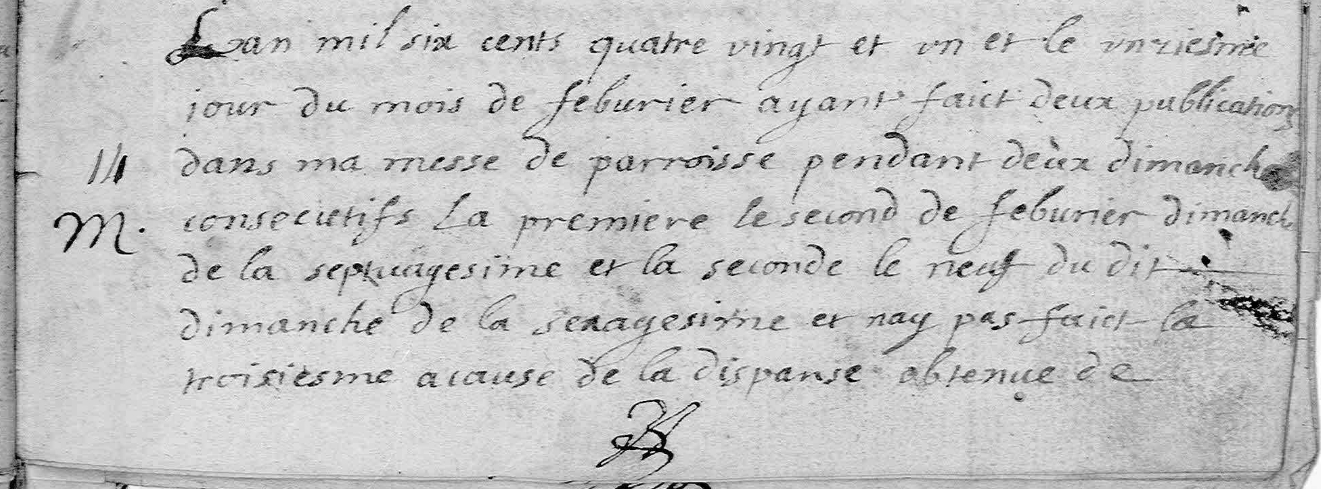 Lan mil six cents quatre vingt et vn et le vnziesme
jour du mois de feburier ayant faict deux publications
14 dans ma messe de parroisse pendant deux dimanche
M. consecutifs La premiere le second de feburier dimanche
de la septuagesime et la seconde le neuf du dit
dimanche de la sexagesime et nay pas faict la
troisiesme acause de la dispanse obtenue de